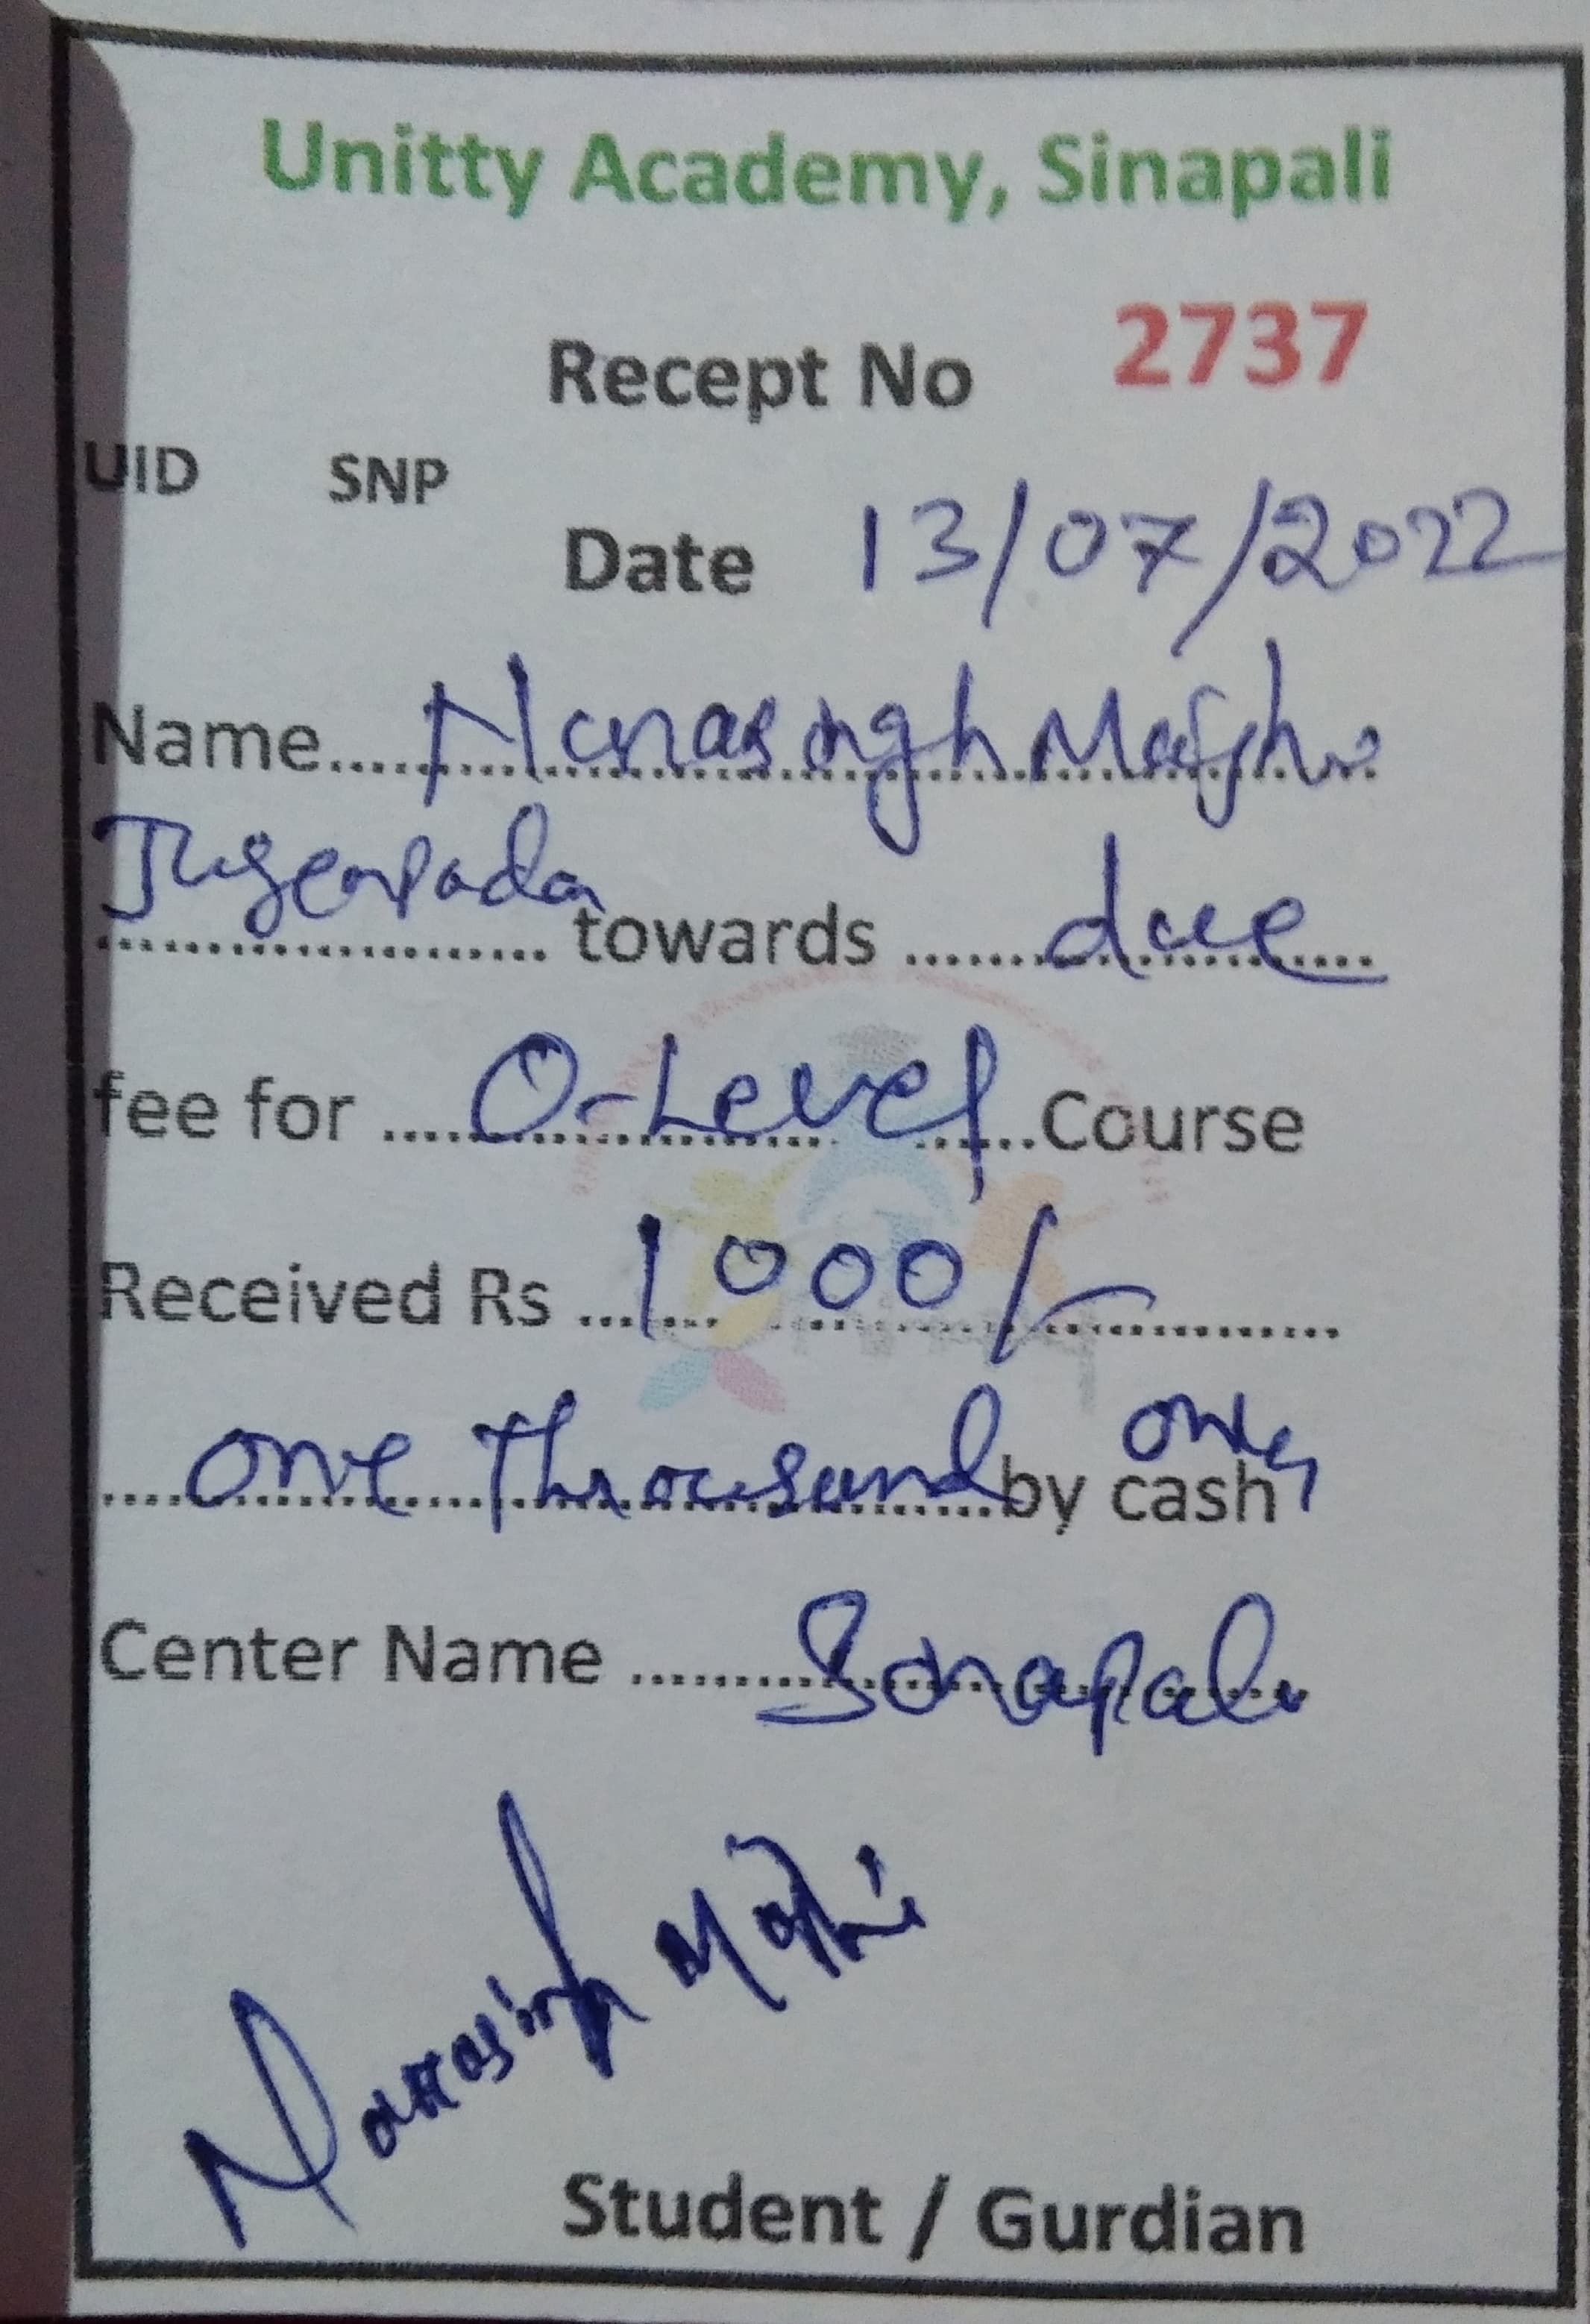 Unitty Academy, Sinapali
Recept No 2737
UID SNP
Date 13/07/2022
Name.... Narasingh Majhi
Jugenpada
.................... towards ...... due ....
fee for .... O-Level ......Course
Received Rs ...... 1000/- ..............
.... One Thousand only ...by cash
Center Name .......... Sinapali
Narasingh Majhi
Student / Gurdian